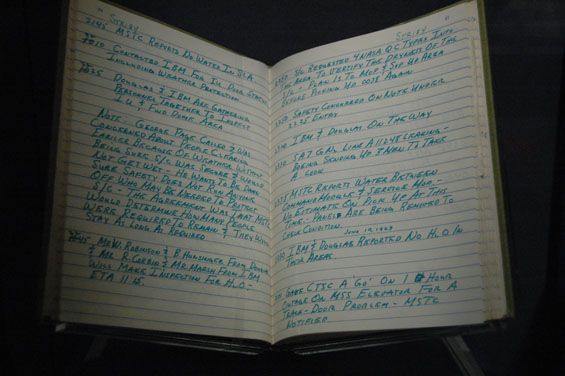 " SCRIBE "
2145 MSTC REPORTS NO WATER IN SLA
2010 CONTACTED IBM FOR I.U. DOOR STATUS
INCLUDING WEATHER PROTECTION
2025 DOUGLAS & IBM ARE GATHERING
PERSONNEL TOGETHER TO INSPECT
I.U. & FWD DOME AREA
NOTE - GEORGE PAGE CALLED & WAS
CONCERNED ABOUT PEOPLE CLEARING
EARLIER BECAUSE OF WEATHER WITHOUT
BEING SURE S/C WAS SECURE & WOULD
NOT GET WET - HE WANTS TO BE DARN
SURE SAFETY DOES NOT RUN ANYONE
OFF WHO MAY BE NEEDED TO PROTECT
S/C - THE AGREEMENT WAS THAT MSTC
WOULD DETERMINE HOW MANY PEOPLE
WERE REQUIRED TO REMAIN & THEY WOULD
STAY AS LONG AS REQUIRED
MR W. ROBINSON & B HUNSINGER FROM DOUGLAS
& MR B. CORBIN & MR MARSH FROM IBM
WILL MAKE INSPECTION FOR H2O -
ETA 11:15
SCRIBE "
S/C REQUESTED 4 NASA QC TYPES INTO
THE AREA TO VERIFY THE DRYNESS OF THE
S/C - PLAN IS TO MOP & SOP UP AREA
BEFORE PICKING UP 0038 AGAIN
SAFETY CONCURRED ON NOTE UNDER
2235 ENTRY
IBM & DOUGLAS ON THE WAY
SA7 GN2 LINE A11248 LEAKING -
BEING SENDING UP 3 MEN TO TAKE
A LOOK
MSTC REPORTS WATER BETWEEN
COMMAND MODULE & SERVICE MOD -
NO ESTIMATE ON PICK UP AT THIS
TIME - PANELS ARE BEING REMOVED TO
CHECK CONDITION.
JUNE 19, 1969
IBM & DOUGLAS REPORTED NO H2O IN
THEIR AREAS
GAVE CTSC A 'GO' ON 1 HOUR
OUTAGE ON MSS ELEVATOR FOR A
TRACK - DOOR PROBLEM - MSTC
NOTIFIED